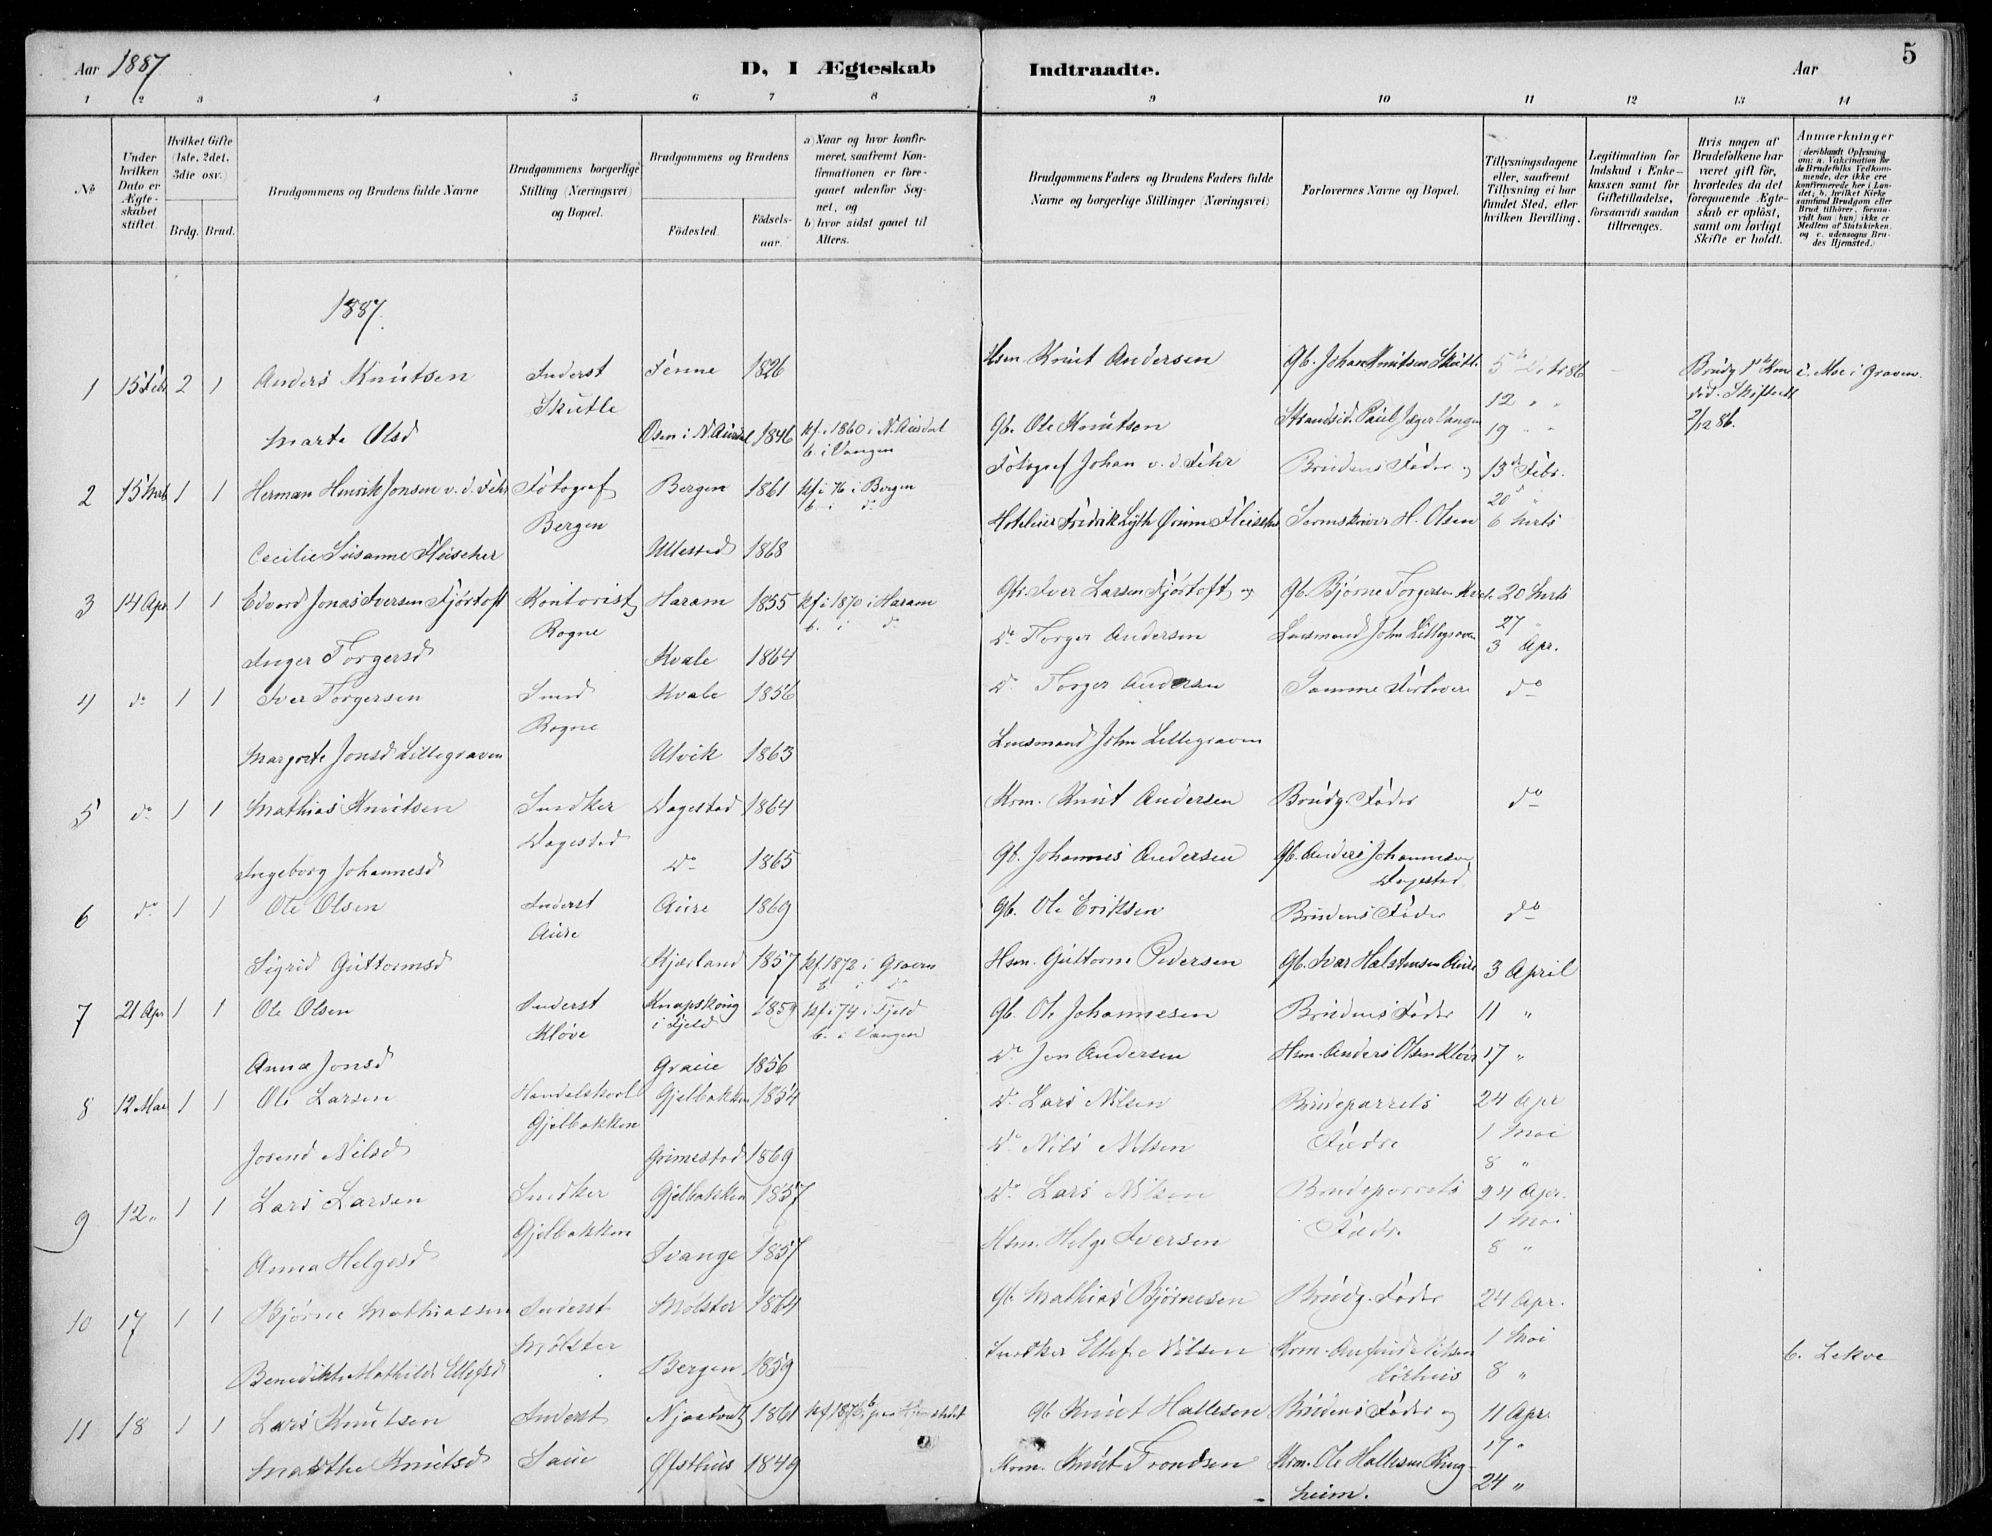 Aar 1887 D, I Ægteskab Indtraadte. Aar 5
1 2 3 4 5 6 7 8 9 10 11 12 13 14
No
Under hvilken Dato er Ægteskabet stiftet.
Hvilket Gifte (1ste, 2det, 3die osv.)
Brdg. Brud.
Brudgommens og Brudens fulde Navne
Brudgommens borgerlige Stilling (Næringsvei) og Bopæl.
Brudgommens og Brudens
Fødested. Fødselsaar.
a) Naar og hvor konfirmeret, saafremt Konfirmationen er foregaaet udenfor Sognet, og
b) hvor sidst gaaet til Alters.
Brudgommens Faders og Brudens Faders fulde Navne og borgerlige Stillinger (Næringsvei)
Forlovernes Navne og Bopæl.
Tillysningsdagene eller, saafremt Tillysning ei har fundet Sted, efter hvilken Bevilling.
Legitimation for Indskud i Enkekassen samt for Giftetilladelse, forsaavidt saadan tiltrænges.
Hvis nogen af Brudefolkene har været gift før, hvorledes da det foregaaende Ægteskab er opløst, samt om lovligt Skifte er holdt.
Anmærkninger (deriblandt Oplysning om: a. Vakcination for de Brudefolks Vedkommende, der ikke ere konfirmerede her i Landet; b. hvilket Kirkesamfund Brudgom eller Brud tilhører, forsaavidt han (hun) ikke er Medlem af Statskirken, og c. udensogns Brudes Hjemsted.)
1887.
1 15 Febr 2 1 Anders Knutsen Inderst Fenne 1826 Hsm. Knut Andersen Gb. Johan Knutsen Skutl. 5te Dcbr 86 Brudg 1ste Kone c. Moe i Graven.
Skutle 12 " " død. Skifteatt
Marte Olsd Osen i N. Aurdal 1846 kf. 1860 i N. Aurdal Gb. Ole Knutsen Strandsid. Paul Jæger Vangen 19 " " 2/12 86.
b. i Vangen
2 15 Mrts 1 1 Herman Henrik Jonsen v. d. Fehr Fotograf Bergen 1861 kf i 76 i Bergen Fotograf Johan v. d. Fehr Brudens Fader og 13de Febr.
Bergen b. i do 20 "
Cecilie Susanne Fleischer Utlested 1868 Hotelier Fredrik Lyth Ørum Fleischer Sorenskriver H. Olsen 6 Mrts
3 14 Apr 1 1 Edvard Jonas Iversen Fjørtoft Kontorist Haram 1855 kf i 1870 i Haram Gb. Iver Larsen Fjørtoft og Gb. Bjørne Torgersen Kvale 20 Mrts
Rogne b. i do 27 "
Inger Torgersd Kvale 1864 Do Torger Andersen Lensmand John Lillegraven 3 Apr.
4 do 1 1 Iver Torgersen Smed Kvale 1856 Do Torger Andersen Samme Forlovere do
Rogne
Margrete Jonsd Lillegraven Ulvik 1863 Lensmand John Lillegraven
5 do 1 1 Mathias Knutsen Snedker Dagestad 1864 Krm. Knut Andersen Brudg. Fader do
Dagestad
Ingeborg Johannesd Do 1865 Gb. Johannes Andersen Gb. Anders Johannesen
Dagestad
6 do 1 1 Ole Olsen Inderst Aure 1869 Gb. Ole Eriksen Brudens Fader do
Aure
Sigrid Guttormsd Kjærland 1857 kf. 1872 i Graven Hsm. Guttorm Pedersen Gb. Ivar Halstensen Aure 3 April
b. i do
7 21 Apr 1 1 Ole Olsen Inderst Knapskoug i Fjeld 1859 kf i 74 i Fjeld Gb. Ole Johannesen Brudens Fader 11 "
Kløve b. i Vangen
Anna Jonsd Graue 1856 Do Jon Andersen Hsm. Anders Olsen Kløve 17 "
8 12 Mai 1 1 Ole Larsen Handelskarl Gjelbakken 1854 Do Lars Nilsen Brudeparrets 24 Apr
Gjelbakken 1 Mai
Jorend Nilsd Grimestad 1869 Do Nils Nilsen Fædre 8 "
9 12 " 1 1 Lars Larsen Snedker Gjelbakken 1857 Do Lars Nilsen Brudeparrets 24 Apr.
Gjelbakken 1 Mai
Anna Helgesd Svange 1857 Hsm. Helge Iversen Fædre 8 "
10 17 1 1 Bjørne Mathiassen Inderst Mølster 1864 Gb Mathias Bjørnesen Brudg. Fader 24 Apr.
Mølster 1 Mai
Benedikte Mathilde Ellefsd Bergen 1859 Snedker Ellef Nilsen Krm. Anfind Nilsen 8 " b. Lekve
11 18 1 1 Lars Knutsen Inderst 1861 kf 1876 Gb Knut Hallesen Brudens Fader og 11 Apr.
17 "
Marthe Knutsd Saue Øfsthus 1849 Krm. Knut Trondsen Krm. Ole Hallesen Ring-
heim. 24 "